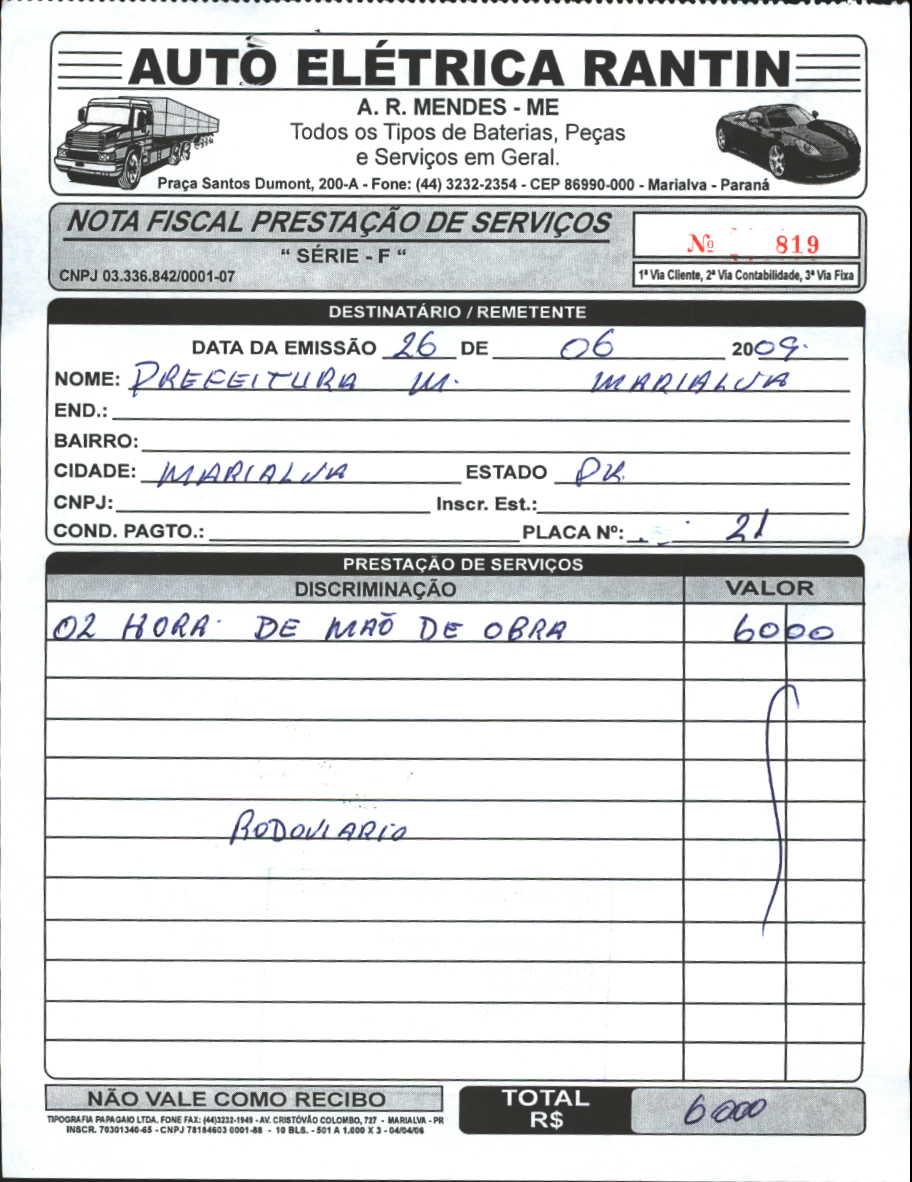 AUTO ELÉTRICA RANTIN
A. R. MENDES - ME
Todos os Tipos de Baterias, Peças
e Serviços em Geral.
Praça Santos Dumont, 200-A - Fone: (44) 3232-2354 - CEP 86990-000 - Marialva - Paraná
NOTA FISCAL PRESTAÇÃO DE SERVIÇOS
" SÉRIE - F "
Nº 819
CNPJ 03.336.842/0001-07
1ª Via Cliente, 2ª Via Contabilidade, 3ª Via Fixa
DESTINATÁRIO / REMETENTE
DATA DA EMISSÃO 26 DE 06 2009.
NOME: PREFEITURA M. MARIALVA
END.:
BAIRRO:
CIDADE: MARIALVA ESTADO PR.
CNPJ: Inscr. Est.:
COND. PAGTO.: PLACA Nº: 21
PRESTAÇÃO DE SERVIÇOS
DISCRIMINAÇÃO VALOR
02 HORA DE MAÕ DE OBRA 6000
RODOVIARIO
NÃO VALE COMO RECIBO
TOTAL
R$ 6000
TIPOGRAFIA PAPAGAIO LTDA. FONE FAX: (44)3232-1949 - AV. CRISTÓVÃO COLOMBO, 727 - MARIALVA - PR
INSCR. 70301340-65 - CNPJ 78184603 0001-88 - 10 BLS. - 501 A 1.000 X 3 - 04/04/06